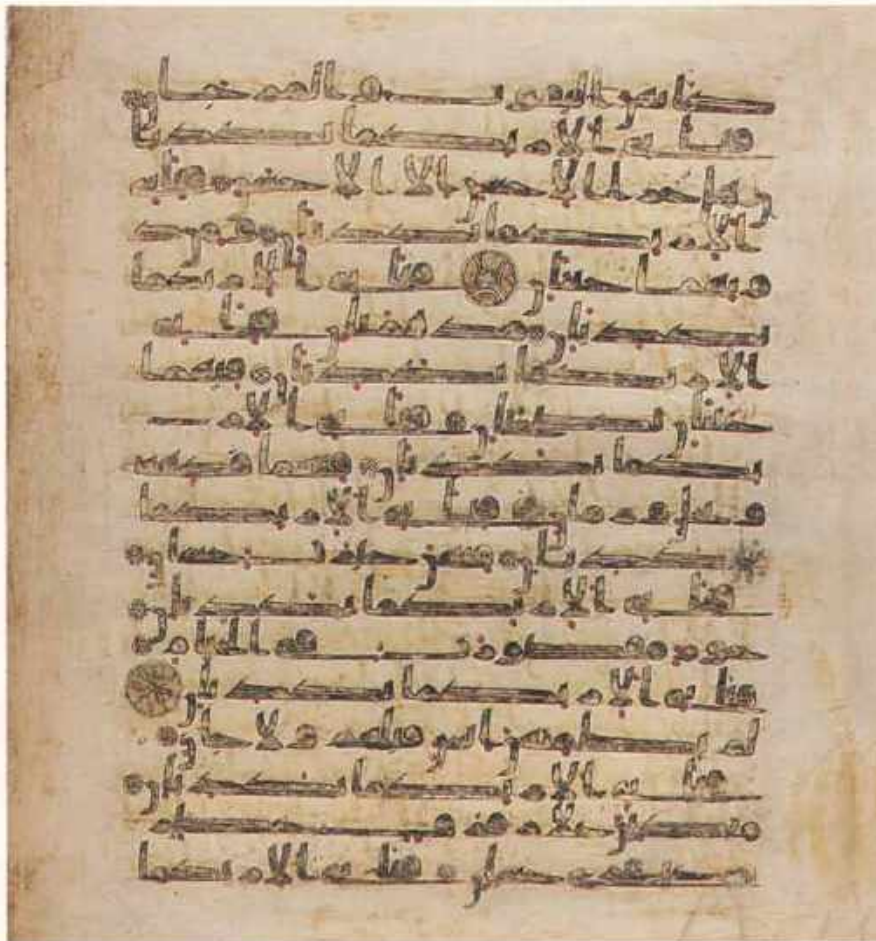 كانهن الياقوت والمرجان
فباي الا ربكما تكذبا
ن هل جزا الاحسن الا الاحسن فباي
الا ربكما تكذبان ومن دو
نهما جنتان فباي الا ربكما
تكذبان مدهامتان فباي
الا ربكما تكذبان فيهما
عينان نضاختان فباي الا
ربكما تكذبان فيهما فكهة
ونخل ورمان فباي الا ربكما
تكذبان فيهن خيرت حسان
فباي الا ربكما تكذبان
حور مقصورت في الخيام
فباي الا ربكما تكذبان
لم يطمثهن انس قبلهم ولا جان
فباي الا ربكما تكذبان
متكين على رفرف خضر
وعبقري حسان فباي الا ربكما